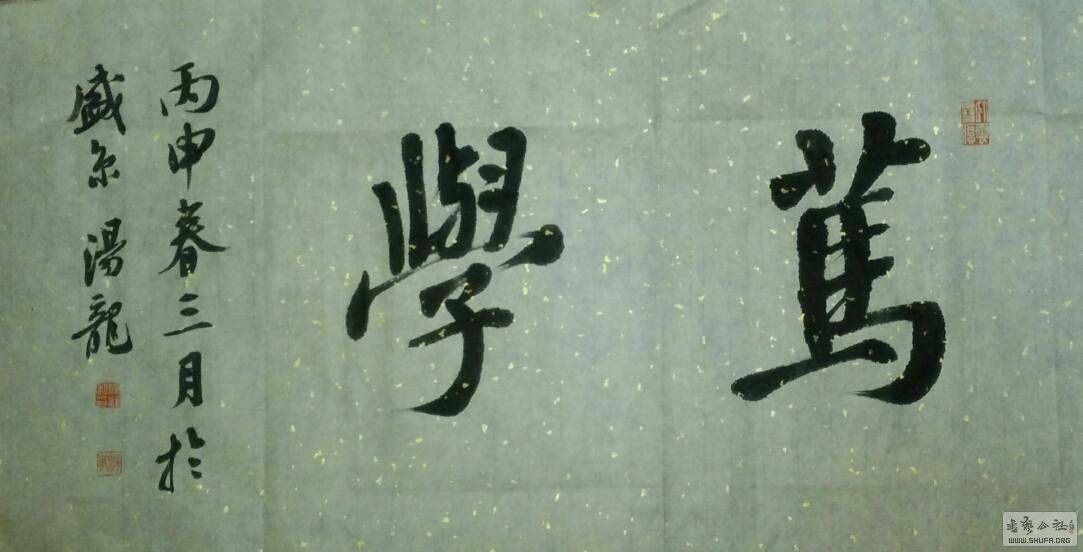 篤學
丙申春三月於
盛京湯龍
書藝公社
WWW.SHUFA.ORG